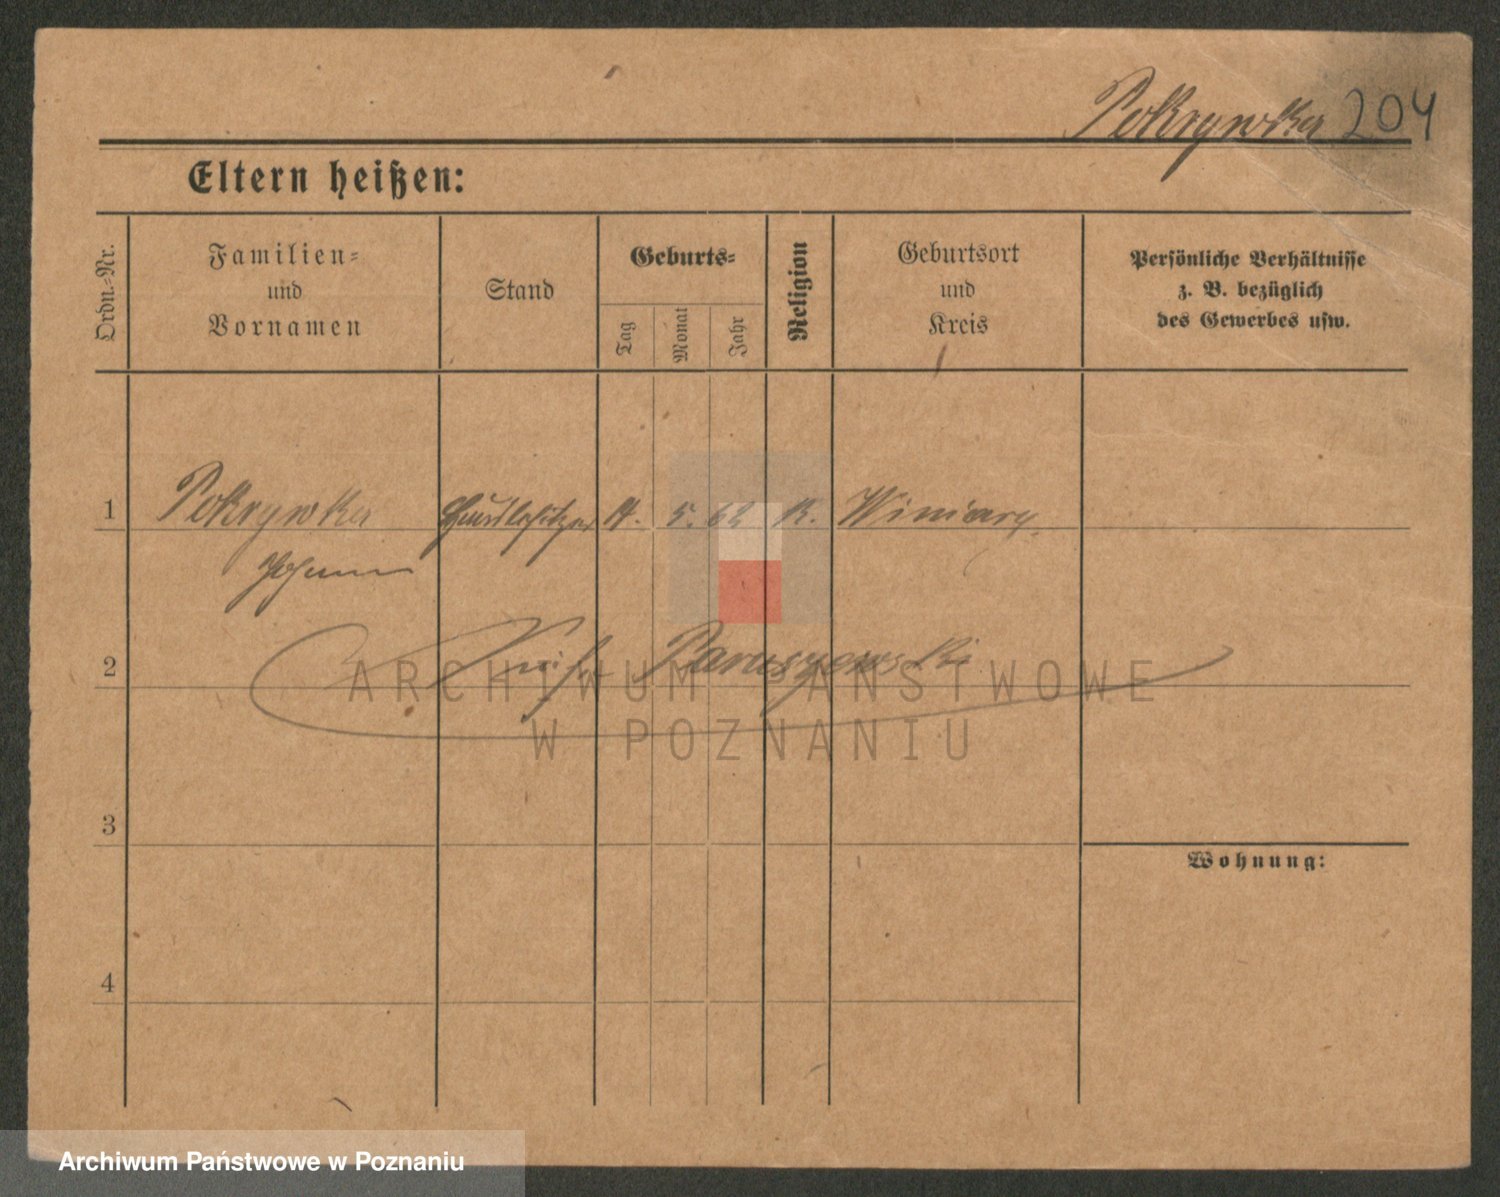 Pokrywka 204
Eltern heißen:
Ordn.-Nr.
Familien-
und
Vornamen
Stand
Geburts-
Tag
Monat
Jahr
Religion
Geburtsort
und
Kreis
Persönliche Verhältnisse
z. B. bezüglich
des Gewerbes usw.
1 Pokrywka 5. 62 K. Winiary
Johann
2
ARCHIWUM PAŃSTWOWE
W POZNANIU
3
Wohnung:
4
Archiwum Państwowe w Poznaniu